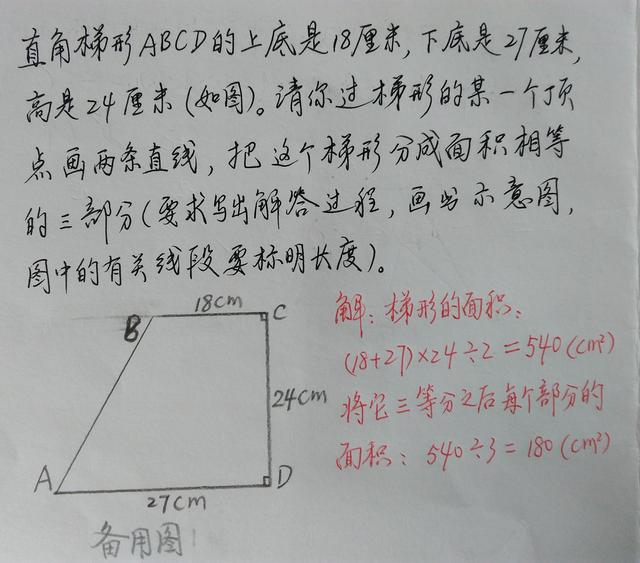 直角梯形ABCD的上底是18厘米,下底是27厘米,
高是24厘米(如图)。请你过梯形的某一个顶
点画两条直线,把这个梯形分成面积相等
的三部分(要求写出解答过程,画出示意图,
图中的有关线段要标明长度)。
18cm
B
C
解:梯形的面积:
(18+27)×24÷2=540(cm²)
24cm
将它三等分之后每个部分的
面积:540÷3=180(cm²)
A
D
27cm
备用图